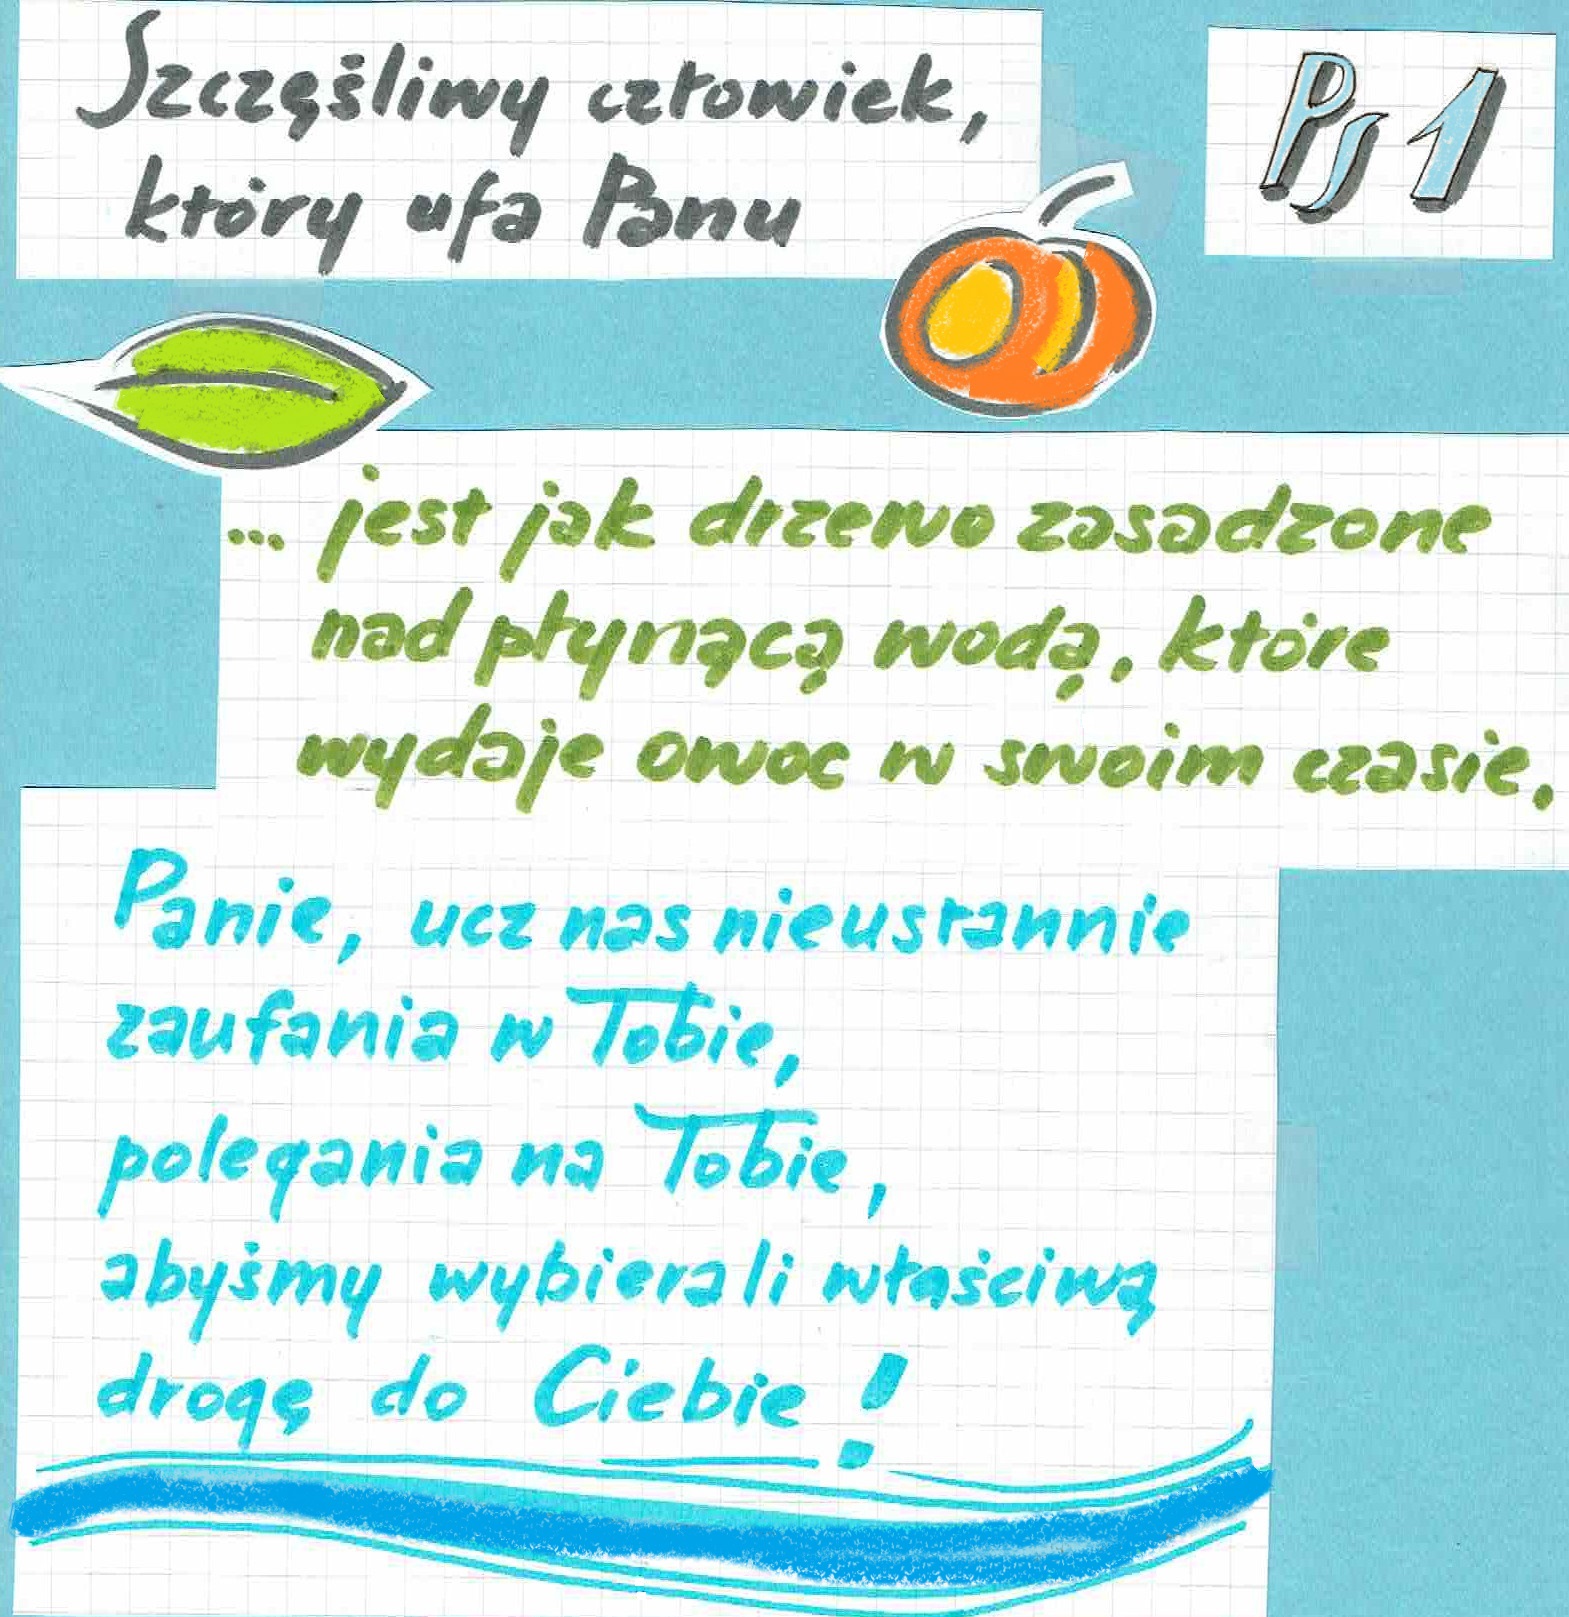 Szczęśliwy człowiek,
który ufa Panu
Ps 1
... jest jak drzewo zasadzone
nad płynącą wodą, które
wydaje owoc w swoim czasie.
Panie, ucz nas nieustannie
zaufania w Tobie,
polegania na Tobie,
abyśmy wybierali właściwą
drogę do Ciebie!